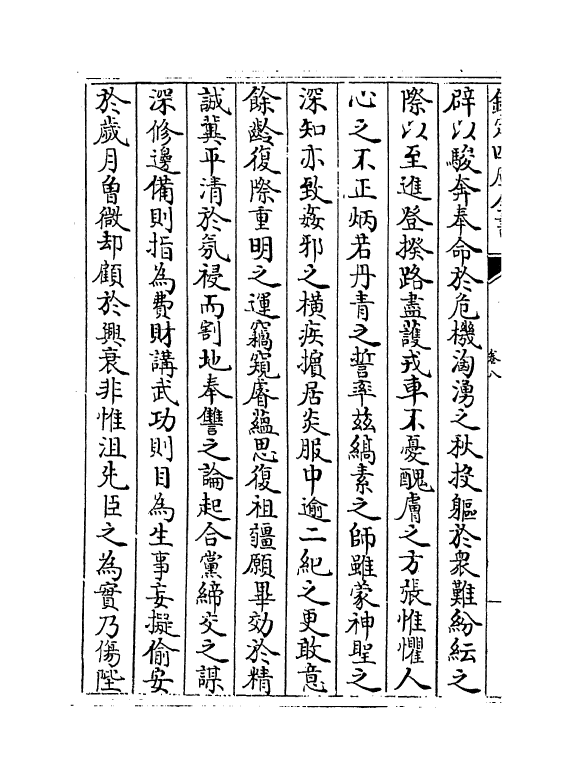 欽定四庫全書
卷八
辟以駿奔奉命於危機洶湧之秋投軀於衆難紛紜之
際以至進登揆路盡護戎車不憂醜虜之方張惟懼人
心之不正炳若丹青之誓率兹縞素之師雖蒙神聖之
深知亦致姦邪之橫疾擯居炎服中逾二紀之更敢意
餘齡復際重明之運竊窺睿藴思復祖疆願畢効於精
誠冀平清於氛祲而割地奉讐之論起合黨締交之謀
深修邊備則指為費財講武功則目為生事妄擬偷安
於歲月曽微却顧於興衰非惟沮先臣之為實乃傷陛